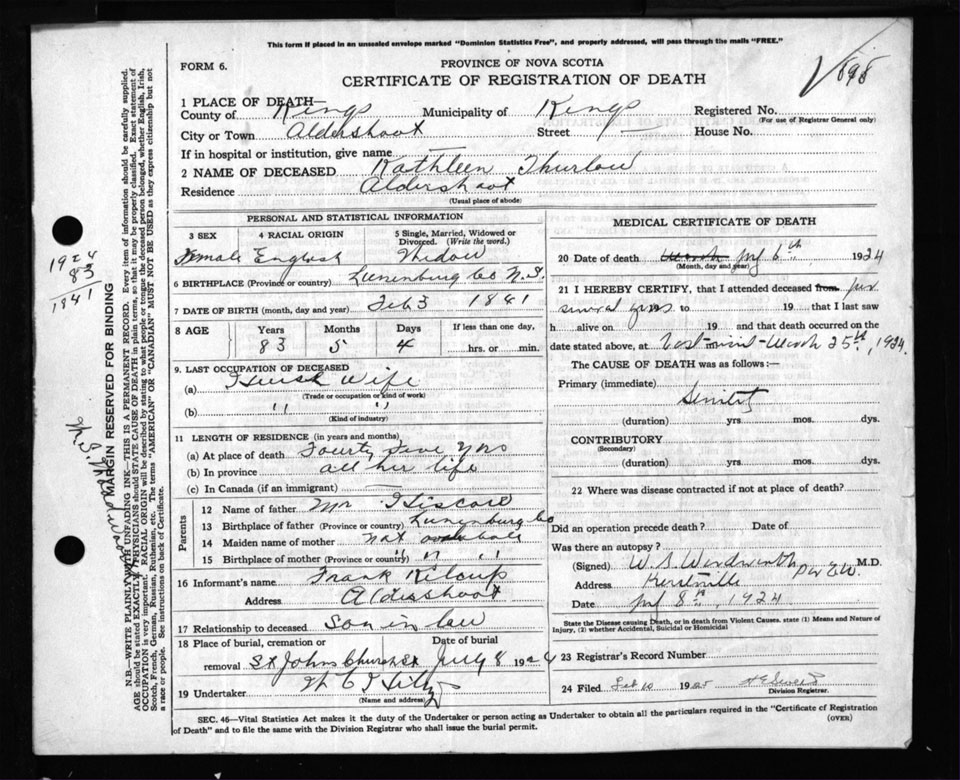 This form if placed in an unsealed envelope marked "Dominion Statistics Free", and properly addressed, will pass through the mails "FREE."
FORM 6.
PROVINCE OF NOVA SCOTIA
CERTIFICATE OF REGISTRATION OF DEATH
1 PLACE OF DEATH—
County of Kings Municipality of Kings Registered No.
(For use of Registrar General only)
City or Town Aldershoot Street — House No.
If in hospital or institution, give name
2 NAME OF DECEASED Kathleen Thurlow
Residence Aldershoot
(Usual place of abode)
PERSONAL AND STATISTICAL INFORMATION
3 SEX 4 RACIAL ORIGIN 5 Single, Married, Widowed or Divorced. (Write the word.)
Female English Widow
6 BIRTHPLACE (Province or country) Lunenburg Co N.S.
7 DATE OF BIRTH (month, day and year) Feb 3 1841
8 AGE Years Months Days If less than one day,
83 5 4 hrs. or min.
9. LAST OCCUPATION OF DECEASED
(a) wife
(Trade or occupation or kind of work)
(b) " "
(Kind of industry)
11 LENGTH OF RESIDENCE (in years and months)
(a) At place of death Fourty five yrs
(b) In province all her life
(c) In Canada (if an immigrant) —
Parents
12 Name of father Mr
13 Birthplace of father (Province or country) Lunenburg Co
14 Maiden name of mother not
15 Birthplace of mother (Province or country) " " "
16 Informant's name Frank Kilcup
Address Aldershoot
17 Relationship to deceased Son in law
18 Place of burial, cremation or removal St Johns Church St Date of burial July 8 1924
19 Undertaker
(Name and address)
MEDICAL CERTIFICATE OF DEATH
20 Date of death July 6th 1924
(Month, day and year)
21 I HEREBY CERTIFY, that I attended deceased from for
several years to 19 that I last saw
h alive on 19 and that death occurred on the
date stated above, at Last visit March 25th, 1924.
The CAUSE OF DEATH was as follows:—
Primary (immediate) Senility
(duration) yrs. mos. dys.
CONTRIBUTORY
(Secondary)
(duration) yrs. mos. dys.
22 Where was disease contracted if not at place of death?
Did an operation precede death? Date of
Was there an autopsy?
(Signed) W. B. M.D.
Address Kentville
Date July 8th, 1924
State the Disease causing Death, or in death from Violent Causes. state (1) Means and Nature of
Injury, (2) whether Accidental, Suicidal or Homicidal
23 Registrar's Record Number
24 Filed Feb 10 1925
Division Registrar.
SEC. 46—Vital Statistics Act makes it the duty of the Undertaker or person acting as Undertaker to obtain all the particulars required in the "Certificate of Registration
of Death" and to file the same with the Division Registrar who shall issue the burial permit.
(OVER)
1924
83
1941
MARGIN RESERVED FOR BINDING
N.B.—WRITE PLAINLY WITH UNFADING INK—THIS IS A PERMANENT RECORD. Every item of information should be carefully supplied.
AGE should be stated EXACTLY. PHYSICIANS should STATE CAUSE OF DEATH in plain terms, so that it may be properly classified. Exact statement of
OCCUPATION is very important. RACIAL ORIGIN will be described by stating to what people or tongue the deceased person belonged, whether English, Irish,
Scotch, French, German, Russian, Ruthenian, etc. The terms "AMERICAN" OR "CANADIAN" MUST NOT BE USED as they express citizenship but not
a race or people. See instructions on back of Certificate.